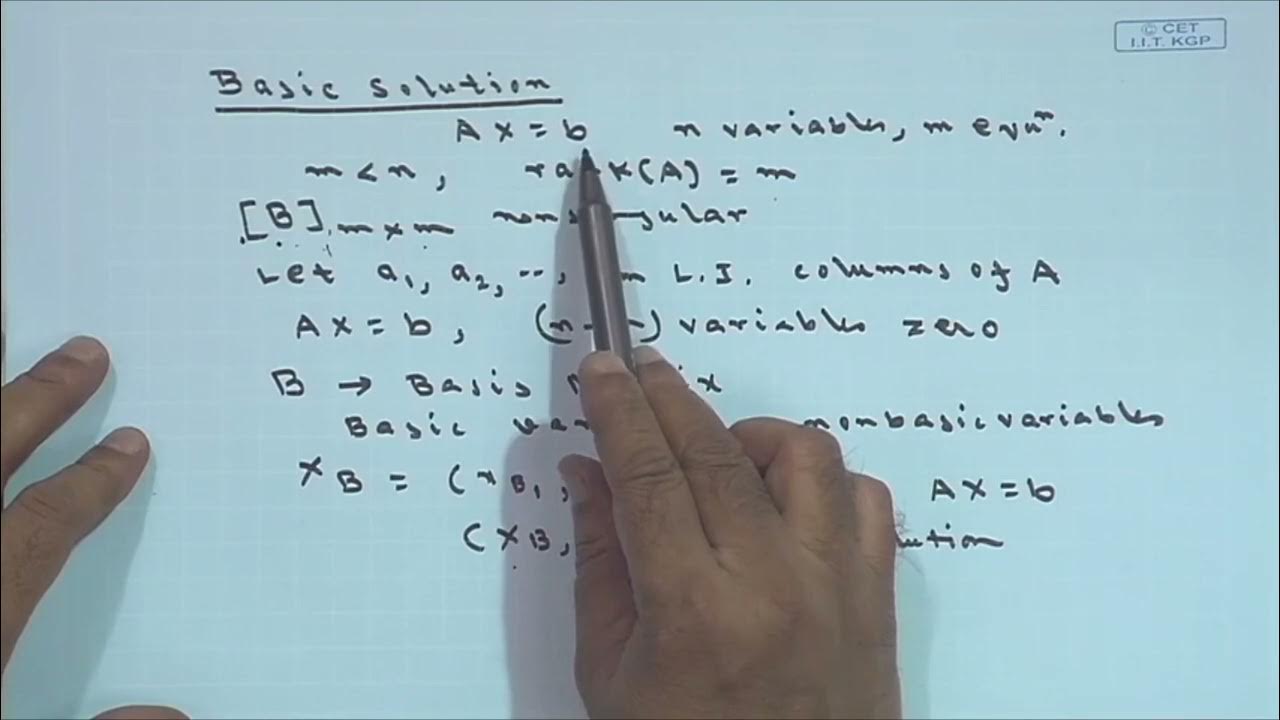 © CET
I.I.T. KGP
Basic solution
AX = b n variables, m equⁿ.
m < n, rank(A) = m
[B] m×m nonsingular
Let a₁, a₂, .., L.I. columns of A
AX = b, (n- ) variables zero
B → Basis
Basic nonbasic variables
X_B = (x_B₁, AX = b
(X_B,